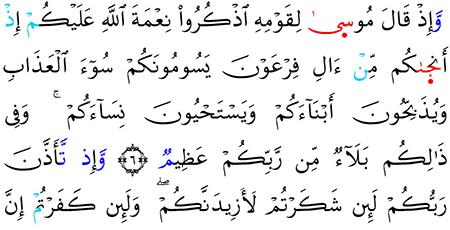 وَإِذْ قَالَ مُوسَىٰ لِقَوْمِهِ ٱذْكُرُوا۟ نِعْمَةَ ٱللَّهِ عَلَيْكُمْ إِذْ
أَنجَىٰكُم مِّنْ ءَالِ فِرْعَوْنَ يَسُومُونَكُمْ سُوٓءَ ٱلْعَذَابِ
وَيُذَبِّحُونَ أَبْنَآءَكُمْ وَيَسْتَحْيُونَ نِسَآءَكُمْ ۚ وَفِى
ذَٰلِكُم بَلَآءٌ مِّن رَّبِّكُمْ عَظِيمٌ ﴿٦﴾ وَإِذ تَّأَذَّنَ
رَبُّكُمْ لَئِن شَكَرْتُمْ لَأَزِيدَنَّكُمْ ۖ وَلَئِن كَفَرْتُمْ إِنَّ